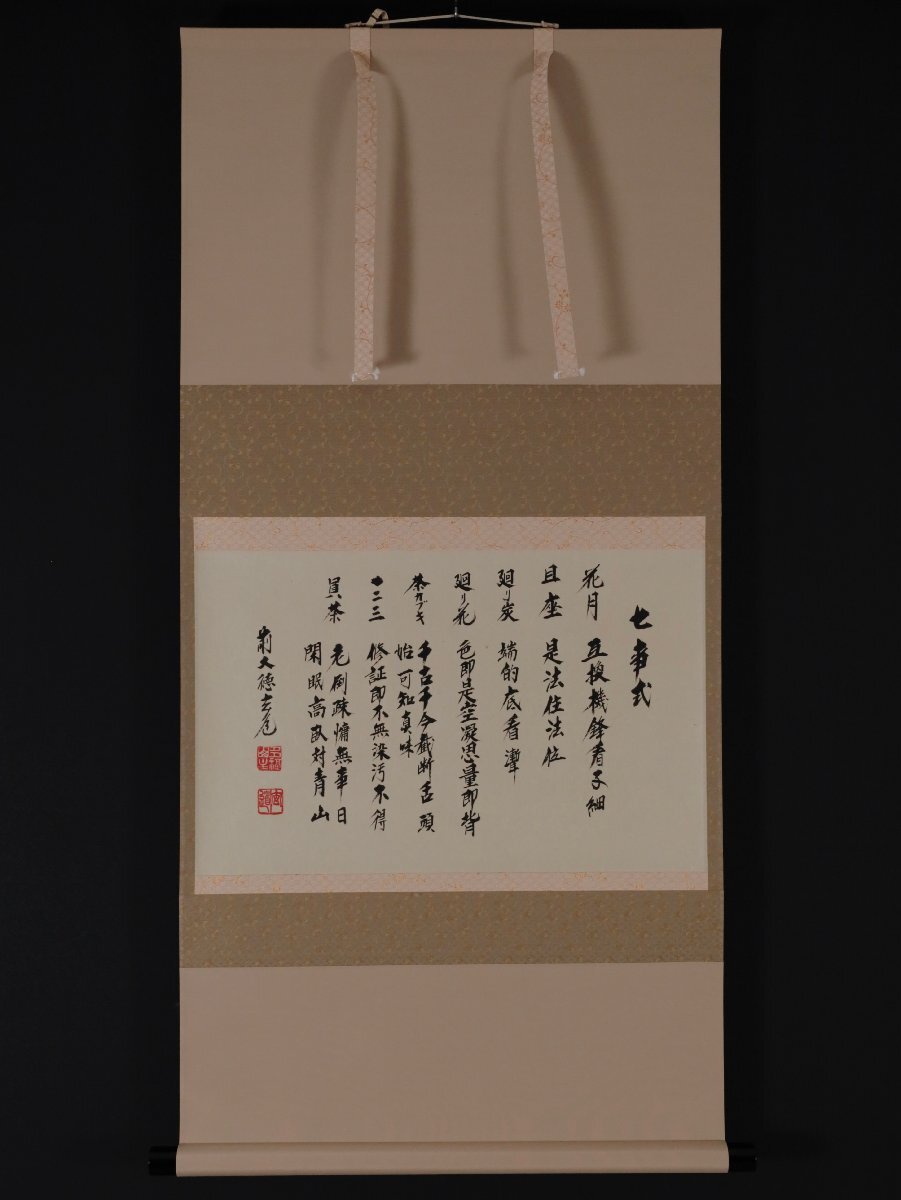 七事式
花月 互換機鋒看子細
且座 是法住法位
廻り炭 端的底看漸
廻り花 色即是空凝思量即背
茶カブキ 千古千今截断舌頭
始可知真味
一二三 修証即不無染汚不得
員茶 老倒疎慵無事日
閑眠高臥対青山
前大徳